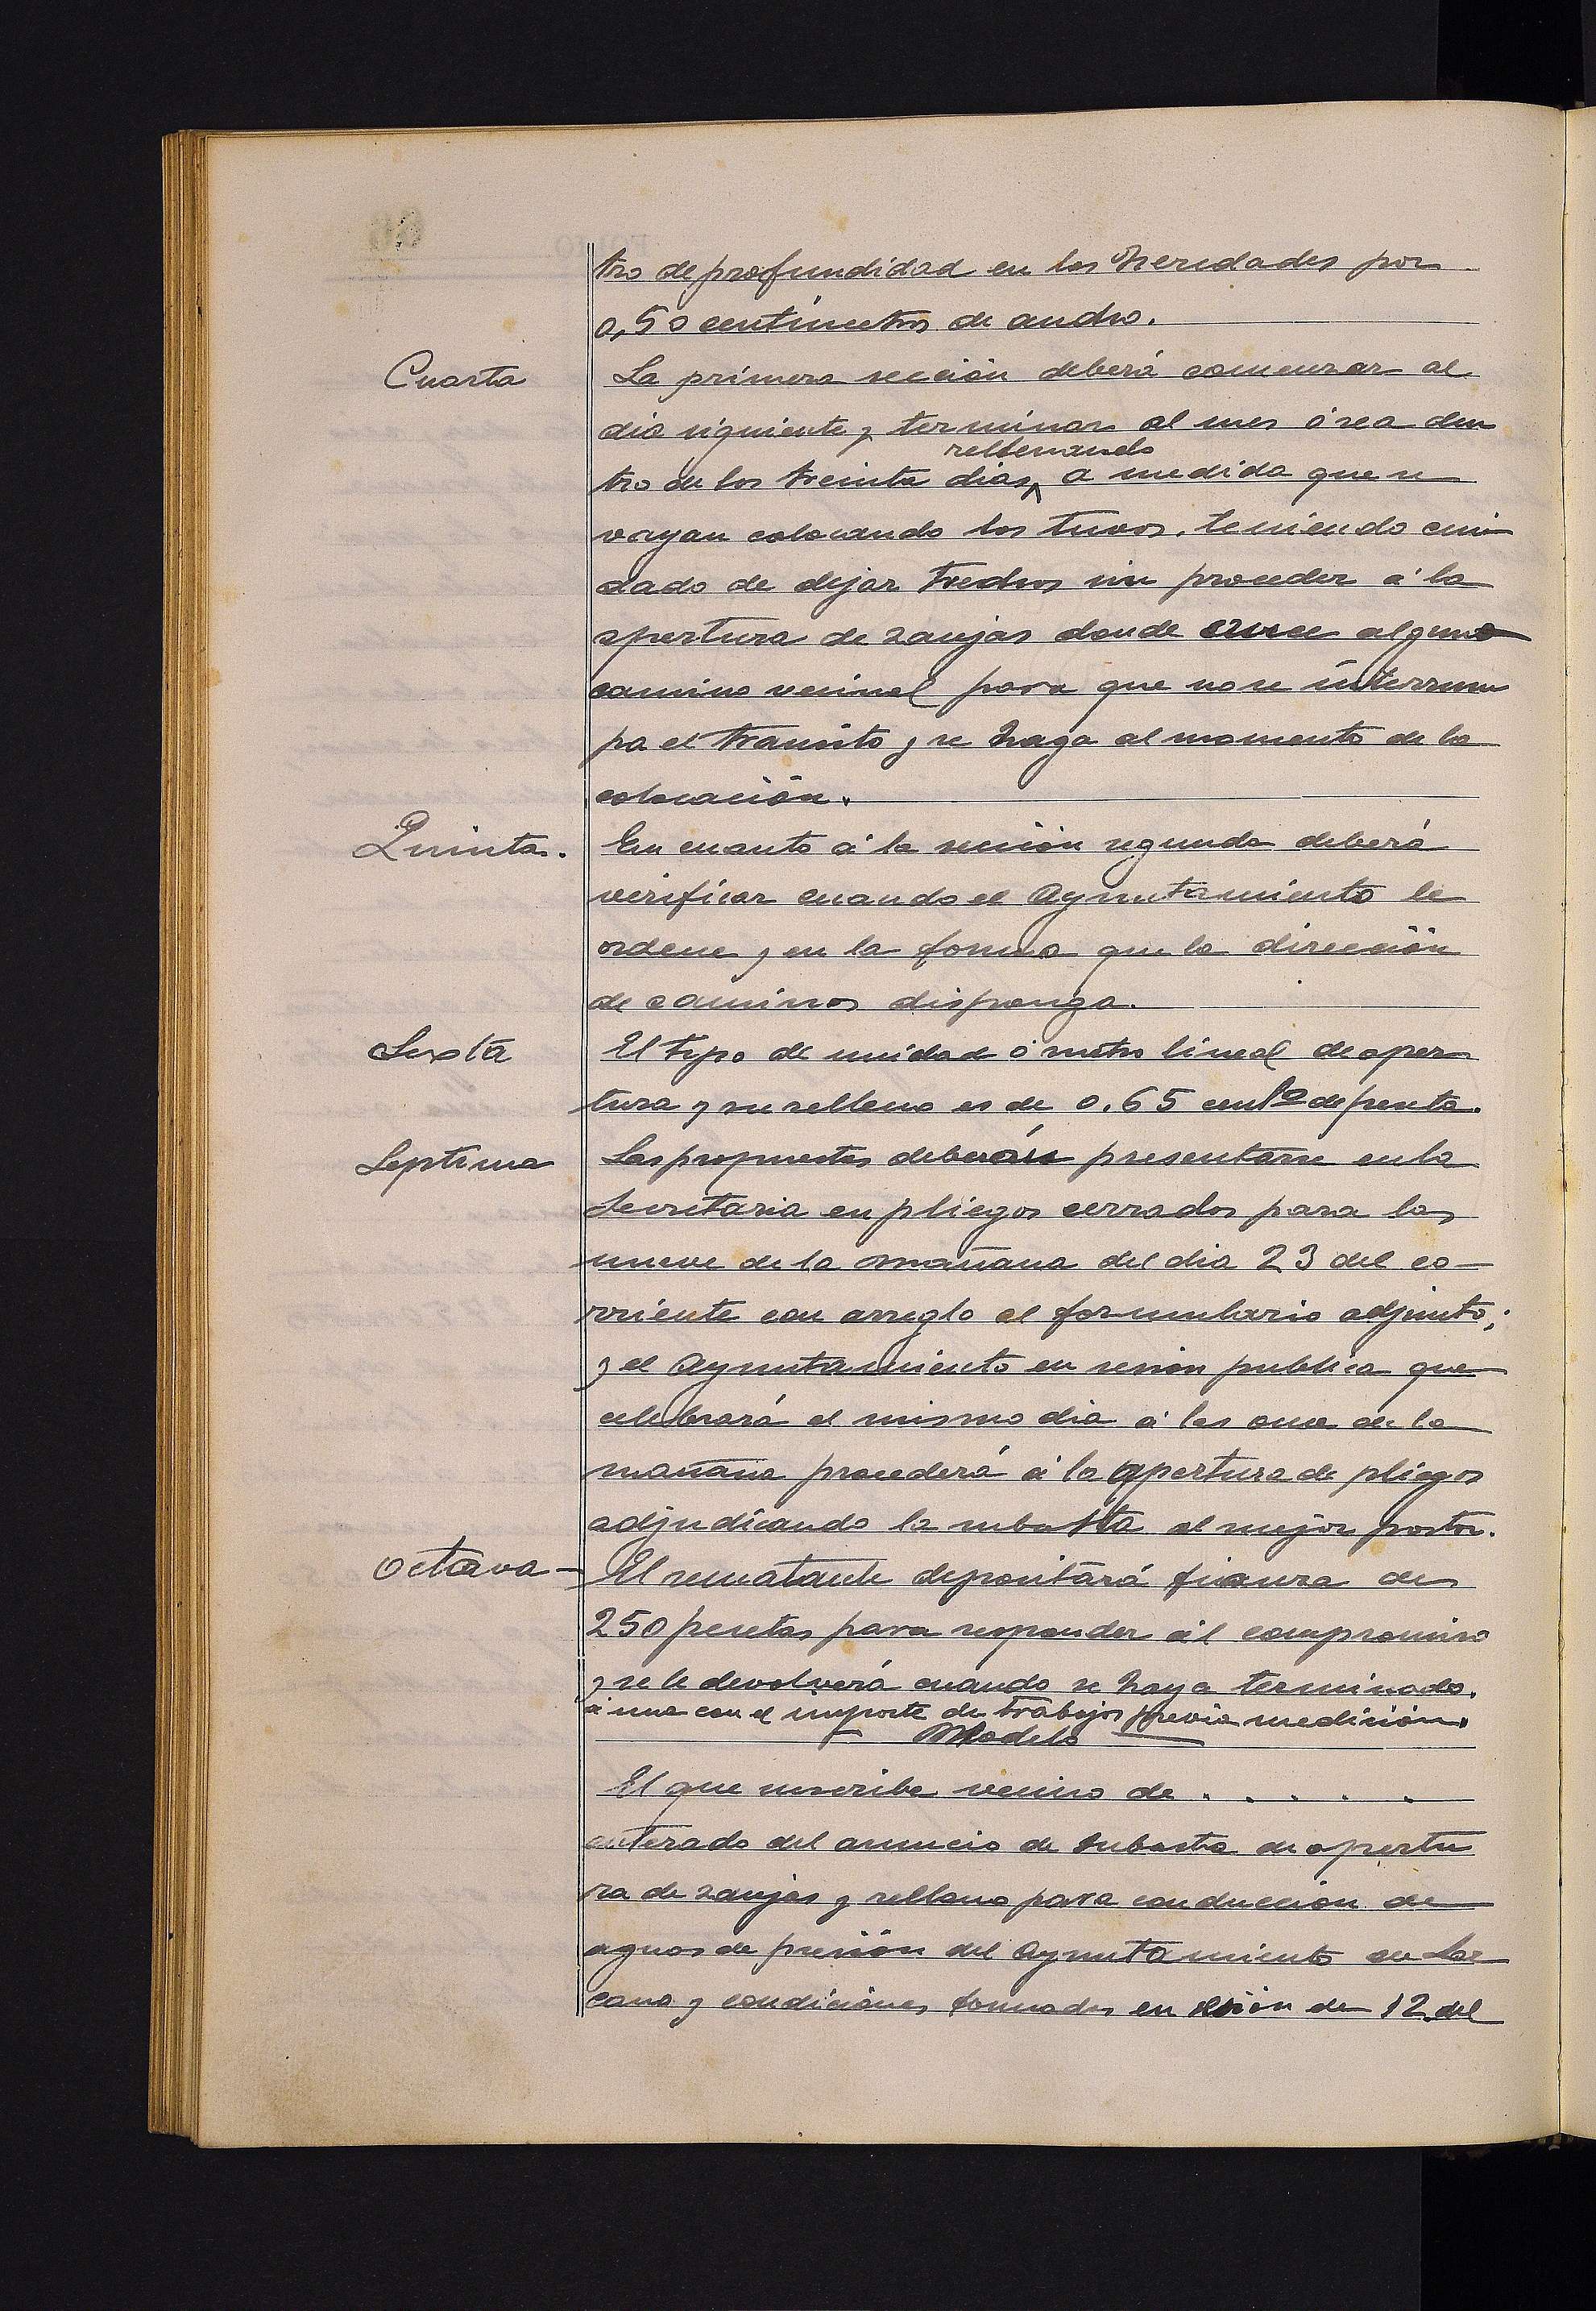 tro de profundidad en las heredades por
0,50 centímetros de ancho.
Cuarta
La primera sección deberá comenzar al
dia siguiente y terminar al mes ó sea den
rellenando
tro de los treinta dias, a medida que se
vayan colocando los tuvos, teniendo cui
dado de dejar trechos sin proceder á la
apertura de zanjas donde cruce alguno
camino vecinal para que no se interrum
pa el transito y se haga al momento de la
colocación.
Quinta.
En cuanto á la sección segunda deberá
verificar cuando el Ayuntamiento le
ordene y en la forma que la dirección
de caminos disponga.
Sexta
El typo de unidad ó metro lineal de aper
tura y su relleno es de 0.65 centº de peseta.
Septima
Las propuestas deberán presentarse en la
Secretaria en pliegos cerrados para las
nueve de la mañana del dia 23 del co-
rriente con arreglo al formulario adjunto;
y el Ayuntamiento en sesión publica que
celebrará el mismo dia á las once de la
mañana procederá á la apertura de pliegos
adjudicando la subasta al mejor postor.
Octava-
El rematante depositará fianza de
250 pesetas para responder ál compromiso
y se le devolverá cuando se haya terminado.
á una con el importe de trabajos previa medición.
Modelo
El que suscribe vecino de . . . . . .
enterado del anuncio de subasta de apertu
ra de zanjas y relleno para conducción de
aguas de presión del Ayuntamiento de Laz
cano y condiciones formadas en sesión de 12 del